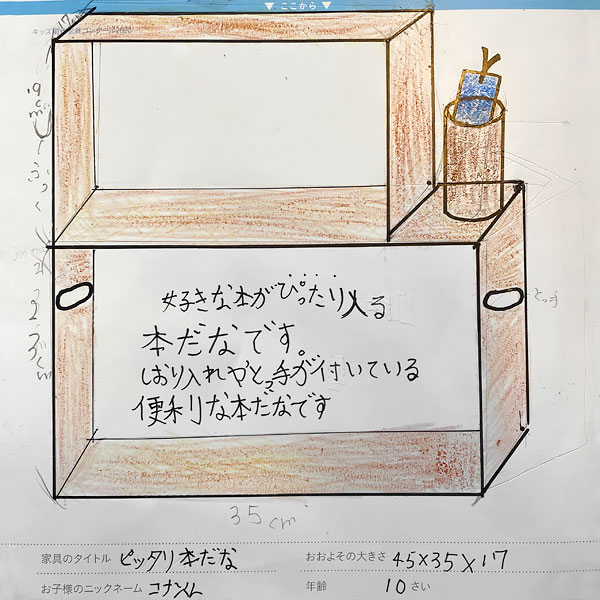 ▼ ここから ▼
17cm
好きな本がぴったり入る
本だなです。
しおり入れやとっ手が付いている
便利な本だなです
とっ手
23cm
35cm
家具のタイトル ピッタリ本だな
おおよその大きさ 45×35×17
お子様のニックネーム コナン
年齢 10さい